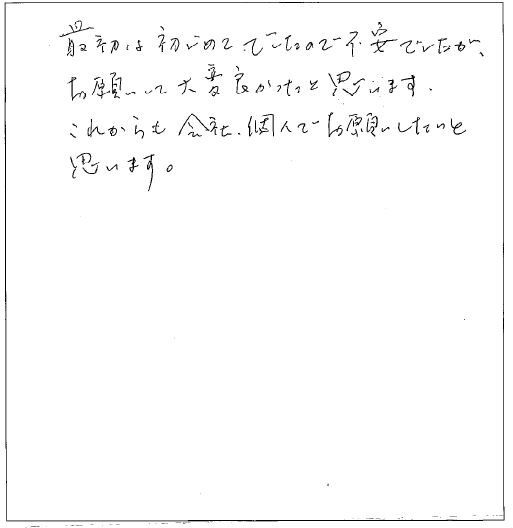 最初は初じめてでしたので不安でしたが、
お願いして大変良かったと思います.
これからも会社、個人でお願いしたいと
思います。